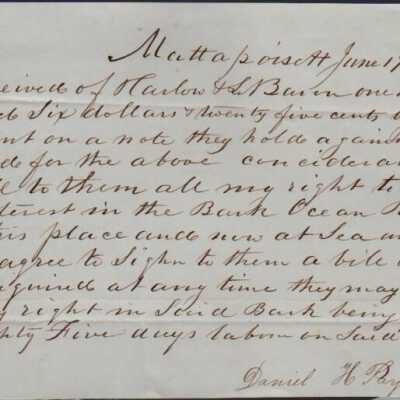 Mattapoisett June 17
eived of Harlow & L Bacon one
d Six dollars & twenty five cents
nt on a note they hold again
d for the above conciderat
to them all my right to
terest in the Bark Ocean
is place and now at Sea an
agree to Sighn to them a bile
equired at any time they may
right in Said Bark being
hty Five days labour on Said
Daniel H